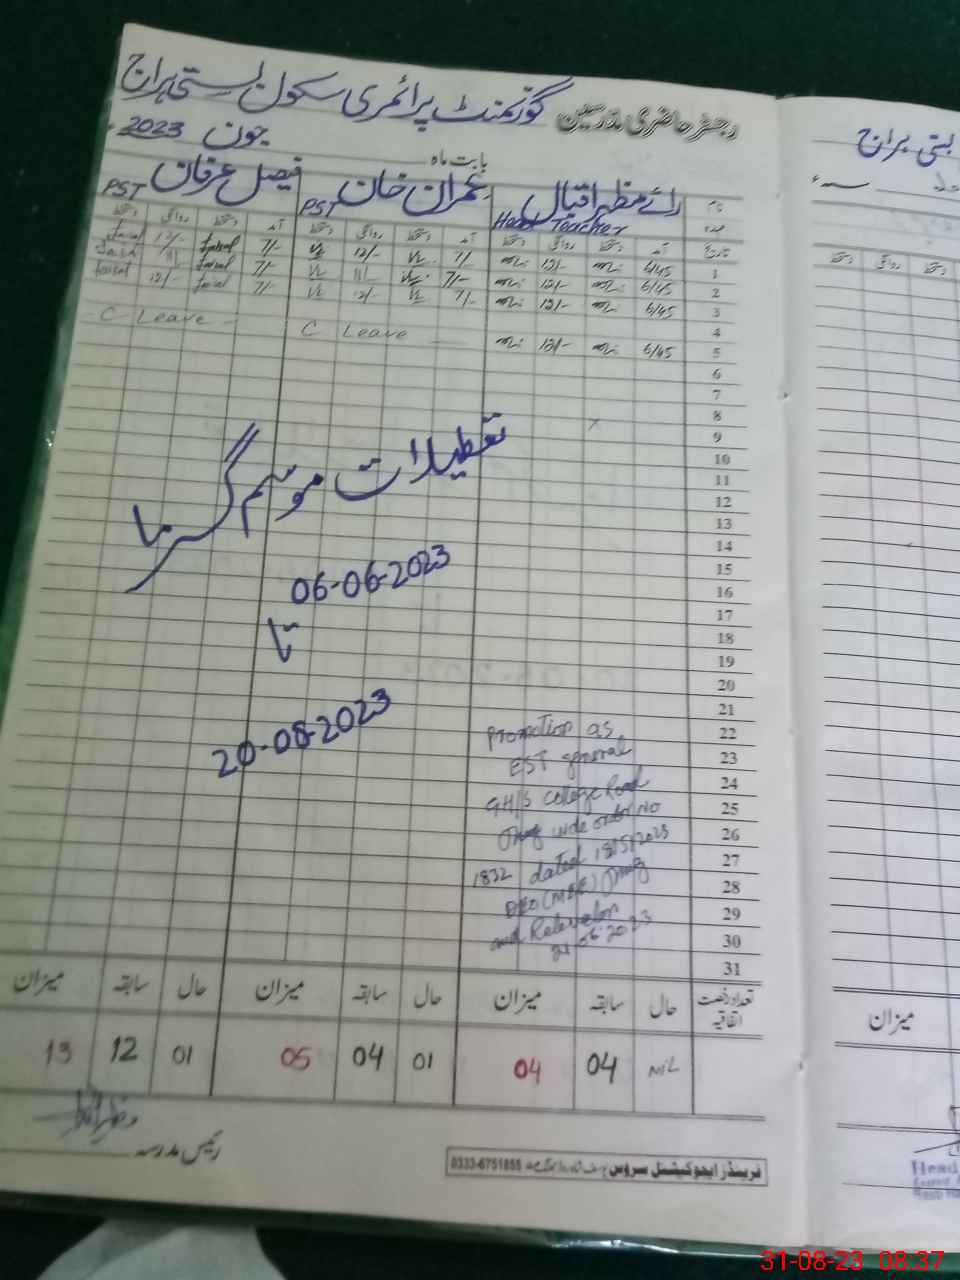 رجسٹر حاضری مدرسین گورنمنٹ پرائمری سکول بستی براج
بابت ماہ جون 2023
نام رائے مظہر اقبال عمران خان فیصل عرفان
عہدہ Head Teacher PST PST
تاریخ آمد دستخط روانگی دستخط آمد دستخط روانگی دستخط آمد دستخط روانگی دستخط
1 6/45 12/- 7/- 12/- 7/- faisal 12/- faisal
2 6/45 12/- 7/- 11/- 7/- faisal 11/- faisal
3 6/45 12/- 7/- 12/- 7/- faisal 12/- faisal
4
5 6/45 12/- C Leave C Leave
6
7
8
9
10
11
12
13
14
15
16
17
18
19
20
21
22
23
24
25
26
27
28
29
30
31
تعطیلات موسم گرما
06-06-2023
تا
20-08-2023
Promotion as
EST general
GH/S College Road
Jhang vide order No
1832 dated 18/5/2023
DEO (MEE) Jhang
and
21.06.2023
تعداد رخصت اتفاقیہ حال سابقہ میزان حال سابقہ میزان حال سابقہ میزان
NIL 04 04 01 04 05 01 12 13
رئیس مدرسہ
فرینڈز ایجوکیشنل سروس 0333-6751855
بستی براج
دستخط روانگی دستخط
میزان
Head
31-08-23 08:37